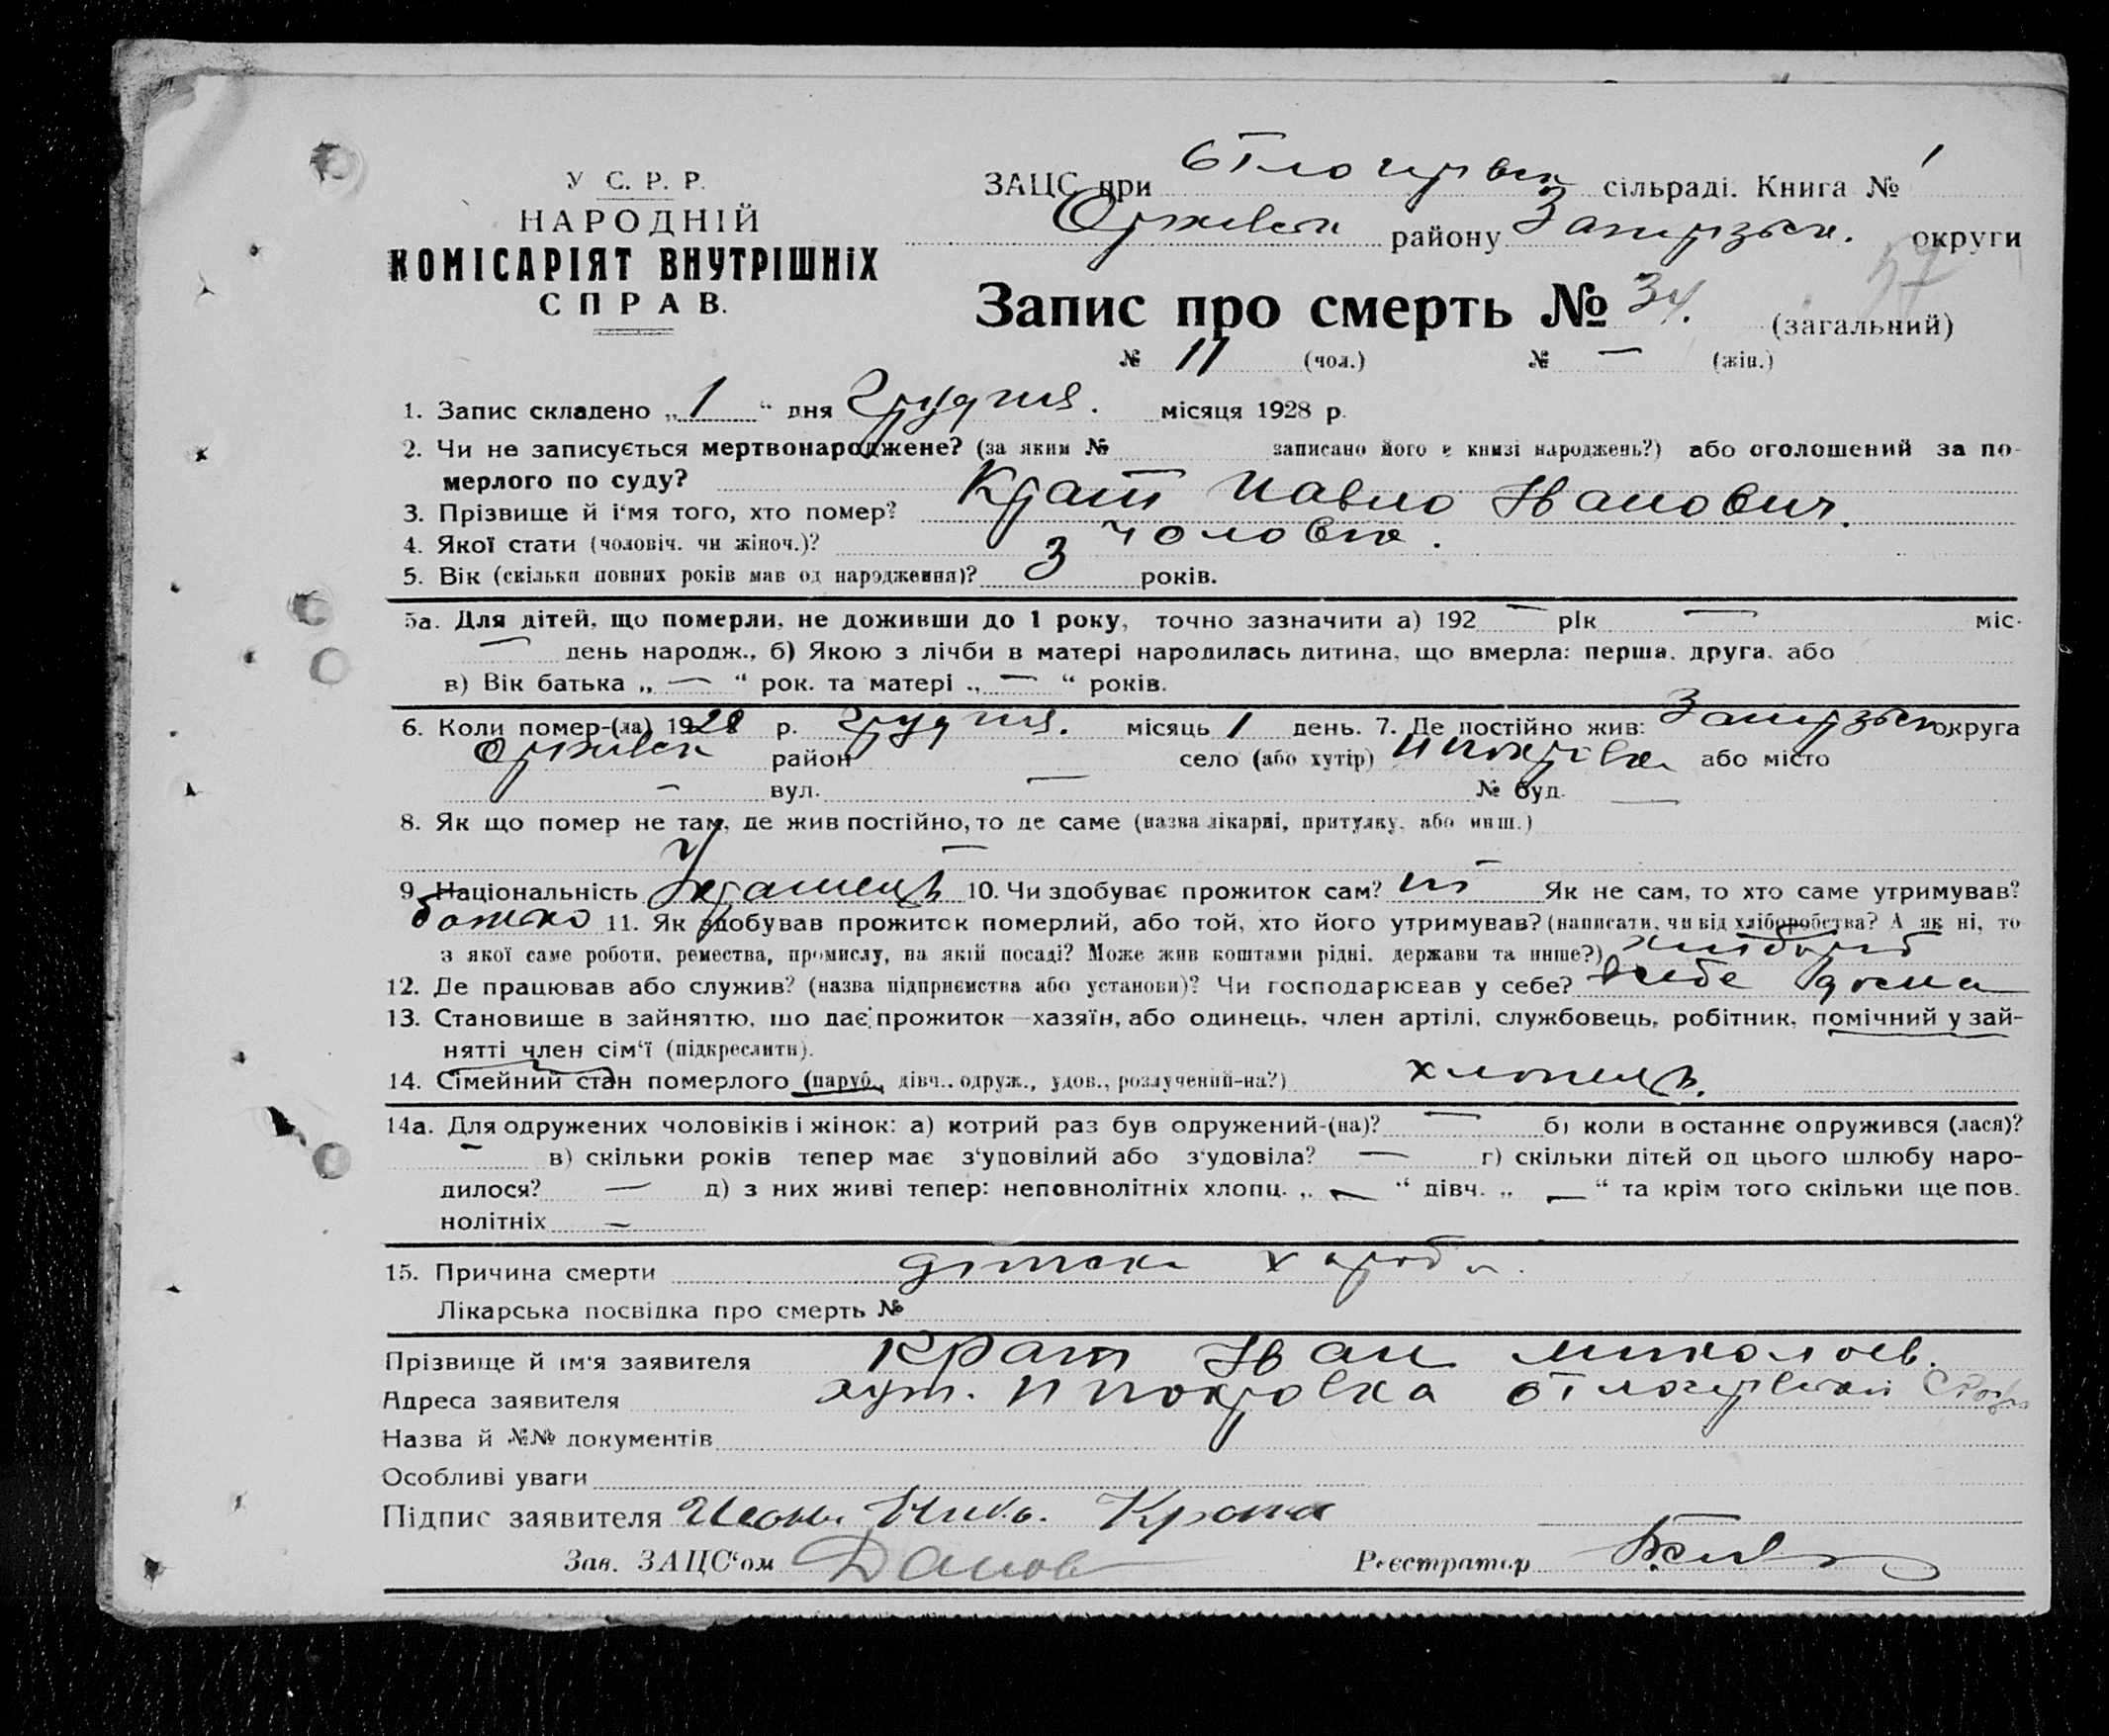 У С. Р. Р.
НАРОДНІЙ
КОМІСАРІЯТ ВНУТРІШНІХ
СПРАВ.
ЗАЦС при сільраді. Книга № 1
району округи
Запис про смерть № 34. (загальний)
№ 11 (чол.) № — (жін.)
1. Запис складено „1“ дня Грудня. місяця 1928 р.
2. Чи не записується мертвонароджене? (за яким № записано його в книзі народжень?) або оголошений за по-
мерлого по суду?
3. Прізвище й і'мя того, хто помер? Крат Павло Іванович.
4. Якої стати (чоловіч. чи жіноч.)? чоловік.
5. Вік (скільки повних років мав од народження)? 3 років.
5а. Для дітей, що померли, не доживши до 1 року, точно зазначити а) 192 — рік — міс.
— день народж., б) Якою з лічби в матері народилась дитина, що вмерла: перша, друга, або
в) Вік батька „ — “ рок. та матері „ — “ років.
6. Коли помер-(ла) 1928 р. грудня. місяць 1 день. 7. Де постійно жив: округа
район село (або хутір) або місто
— вул. — № буд. —
8. Як що помер не там, де жив постійно, то де саме (назва лікарні, притулку, або инш.)
—
9. Національність Украінець 10. Чи здобуває прожиток сам? ні Як не сам, то хто саме утримував?
батько 11. Як здобував прожиток померлий, або той, хто його утримував? (написати, чи від хліборобства? А як ні, то
з якої саме роботи, ремества, промислу, на якій посаді? Може жив коштами рідні, держави та инше?) хлібороб
12. Де працював або служив? (назва підприємства або установи)? Чи господарював у себе? в себе дома
13. Становище в зайняттю, що дає прожиток—хазяїн, або одинець, член артілі, службовець, робітник, помічний у зай-
нятті член сім'ї (підкреслити).
14. Сімейний стан померлого (паруб., дівч., одруж., удов., розлучений-на?) хлопець.
14а. Для одружених чоловіків і жінок: а) котрий раз був одружений-(на)? — б) коли в останнє одружився (лася)?
— в) скільки років тепер має з'уповілий або з'удовіла? — г) скільки дітей од цього шлюбу наро-
дилося? — д) з них живі тепер: неповнолітніх хлопц. „ — “ дівч. „ — “ та крім того скільки ще пов.
нолітніх —
15. Причина смерти дітська хороба.
Лікарська посвідка про смерть №
Прізвище й ім'я заявителя Крат Іван Миколаєв.
Адреса заявителя хут.
Назва й №№ документів
Особливі уваги
Підпис заявителя
Зав. ЗАЦС'ом Реєстратор